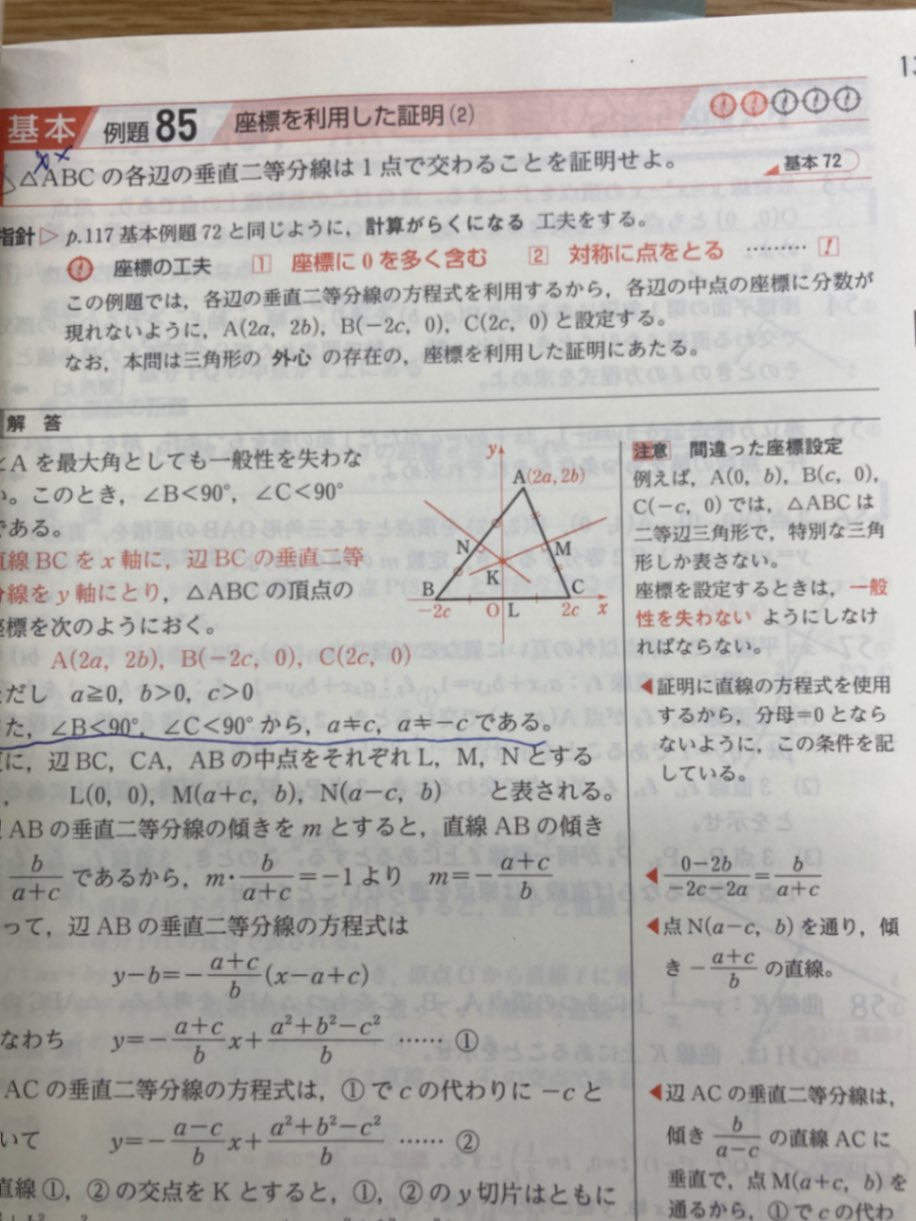 基本 例題 85 座標を利用した証明(2)
△ABC の各辺の垂直二等分線は1点で交わることを証明せよ。
基本 72
指針 ▷ p.117 基本例題 72 と同じように，計算がらくになる 工夫をする。
座標の工夫 1 座標に 0 を多く含む 2 対称に点をとる ……… !
この例題では，各辺の垂直二等分線の方程式を利用するから，各辺の中点の座標に分数が
現れないように，A(2a, 2b)，B(−2c, 0)，C(2c, 0) と設定する。
なお，本問は三角形の 外心 の存在の，座標を利用した証明にあたる。
解答
A を最大角としても一般性を失わな
。このとき，∠B<90°，∠C<90°
である。
直線 BC を x 軸に，辺 BC の垂直二等
分線を y 軸にとり，△ABC の頂点の
座標を次のようにおく。
A(2a, 2b)，B(−2c, 0)，C(2c, 0)
ただし a≧0，b>0，c>0
た，∠B<90°，∠C<90° から，a≠c，a≠−c である。
に，辺 BC，CA，AB の中点をそれぞれ L，M，N とする
， L(0, 0)，M(a+c, b)，N(a−c, b) と表される。
AB の垂直二等分線の傾きを m とすると，直線 AB の傾き
b/(a+c) であるから，m・b/(a+c)=−1 より m=−(a+c)/b
って，辺 AB の垂直二等分線の方程式は
y−b=−(a+c)/b (x−a+c)
なわち y=−(a+c)/b x+(a²+b²−c²)/b …… ①
AC の垂直二等分線の方程式は，① で c の代わりに −c と
いて y=−(a−c)/b x+(a²+b²−c²)/b …… ②
直線 ①，② の交点を K とすると，①，② の y 切片はともに
y
A(2a, 2b)
N
M
K
B
C
−2c
O
L
2c
x
注意 間違った座標設定
例えば，A(0, b)，B(c, 0)，
C(−c, 0) では，△ABC は
二等辺三角形で，特別な三角
形しか表さない。
座標を設定するときは，一般
性を失わない ようにしなけ
ればならない。
◀証明に直線の方程式を使用
するから，分母=0 となら
ないように，この条件を記
している。
◀(0−2b)/(−2c−2a)=b/(a+c)
◀点 N(a−c, b) を通り，傾
き −(a+c)/b の直線。
◀辺 AC の垂直二等分線は，
傾き b/(a−c) の直線 AC に
垂直で，点 M(a+c, b) を
通るから，① で c の代わ